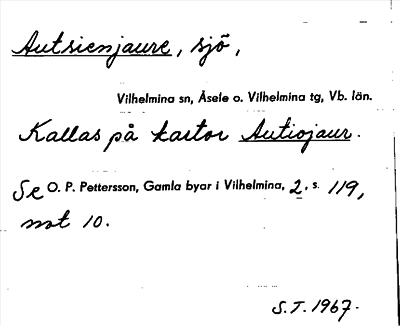 Autsienjaure, sjö,
Vilhelmina sn, Åsele o. Vilhelmina tg, Vb. län.
Kallas på kartor Autiojaur.
Se O. P. Pettersson, Gamla byar i Vilhelmina, 2, s. 119,
not 10.
S.T. 1967.